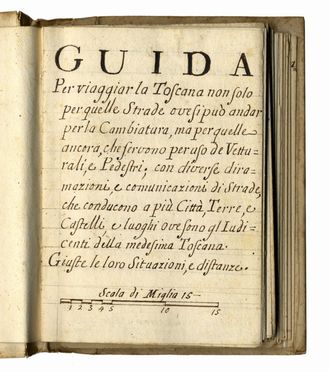 GUIDA
Per viaggiar la Toscana non solo
per quelle Strade ove si può andar
per la Cambiatura, ma per quelle
ancora, che servono per uso de Vettu-
rali, e Pedestri; con diverse dira-
mazioni, e comunicazioni di Strade,
che conducono a più Città, Terre, e
Castelli, e luoghi ove sono gl'Iudi-
centi della medesima Toscana.
Giuste le loro Situazioni, e distanze.
Scala di Miglia 15
1 2 3 4 5 10 15